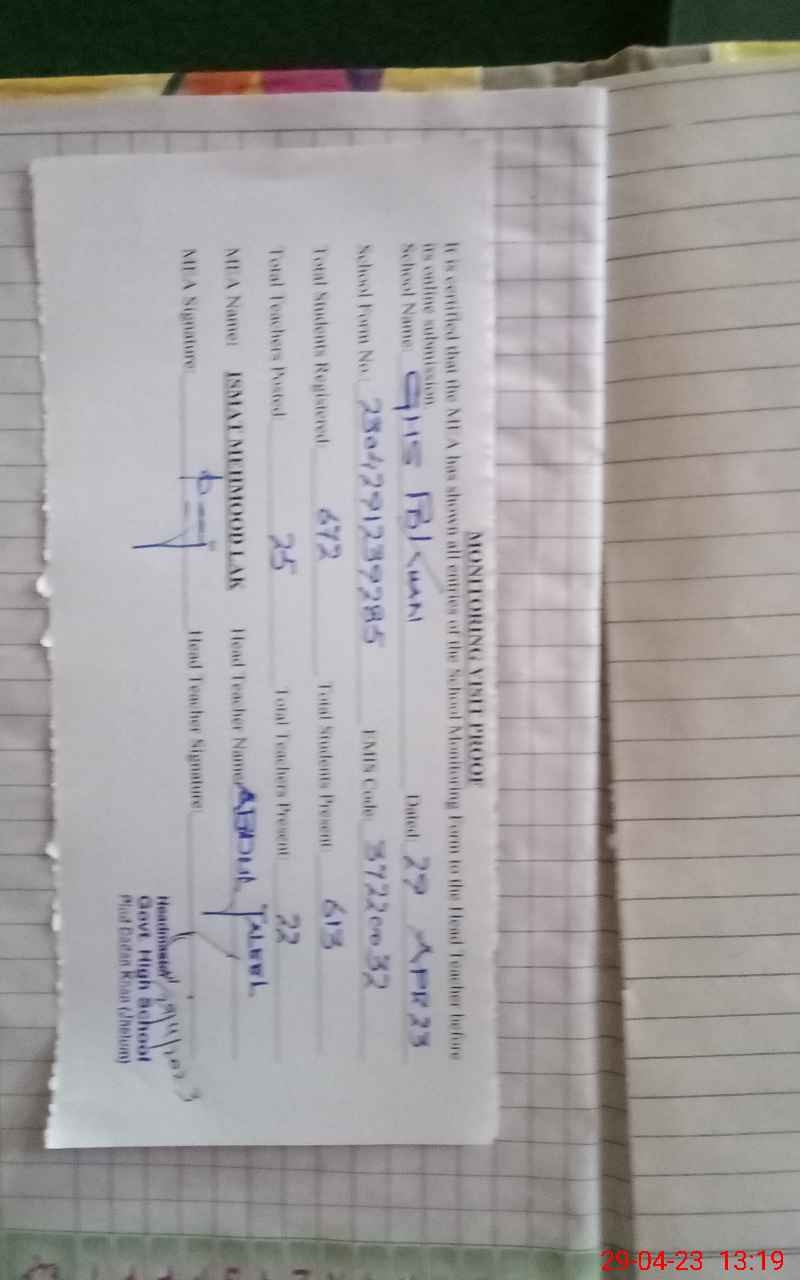 MONITORING VISIT PROOF
It is certified that the MEA has shown all entries of the School Monitoring Form to the Head Teacher before
its online submission.
School Name: GHS PD/KHAN Dated: 29 APR 23
School Form No.: 230429123928 5 EMIS Code: 37220032
Total Students Registered: 672 Total Students Present: 613
Total Teachers Posted: 25 Total Teachers Present: 22
MEA Name: ISMAL MEHMOOD LAK Head Teacher Name: ABDUL JALEEL
MEA Signature: Head Teacher Signature:
Headmaster
Govt. High School
Pind Dadan Khan (Jhelum)
29-04-23 13:19